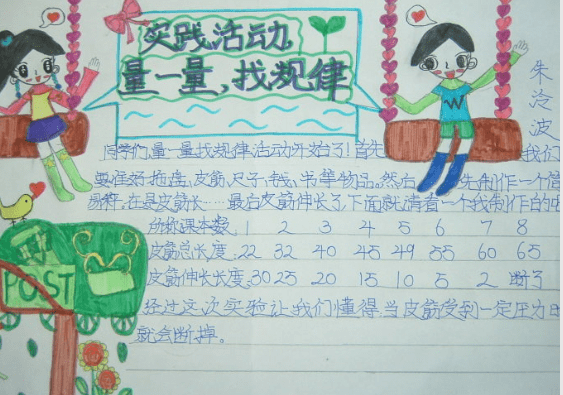 实践活动
量一量、找规律
朱泠波
同学们,量一量找规律活动开始了!首先 我们
要准好拖连,皮筋,尺子,钱,书等物品,然后 先制作一个简
易秤,在县皮筋长……最后皮筋伸长了,下面就请看一个我制作的
所称课本数: 1 2 3 4 5 6 7 8
皮筋总长度: 22 32 40 45 49 55 60 65
皮筋伸长长度: 30 25 20 15 10 5 2 断了
POST
经过这次实验让我们懂得,当皮筋受到一定压力
就会断掉。